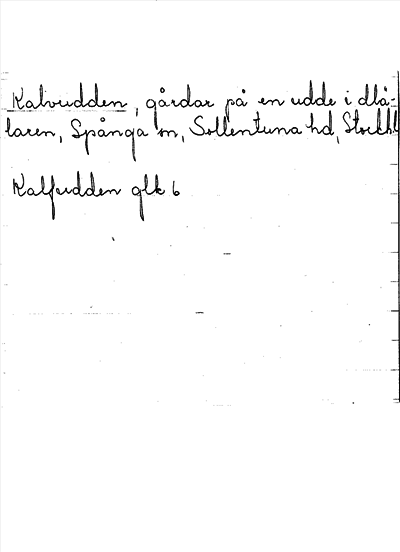 Kalvudden, gårdar på en udde i Mä-
laren, Spånga sn, Sollentuna hd, Stockh.
Kalfudden glk 6